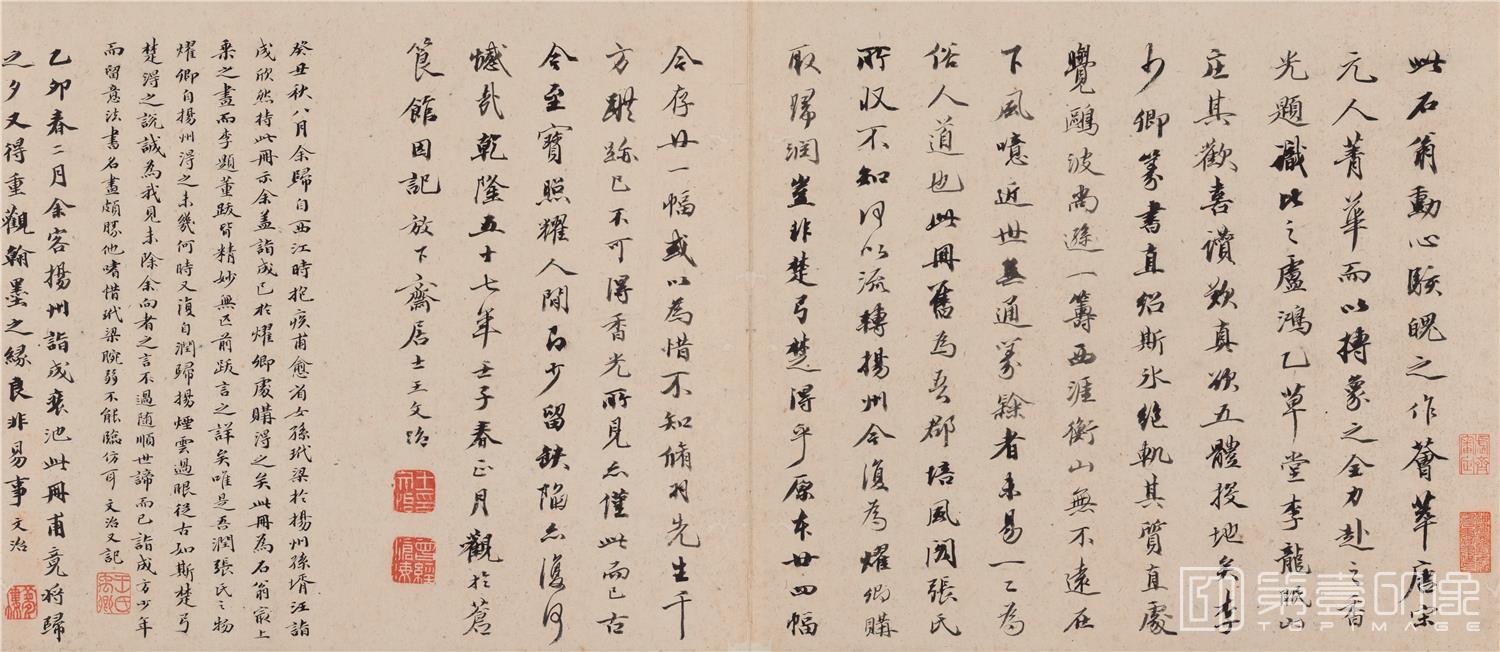 此石翁動心駭魄之作薈萃唐宋
元人菁華而以摶象之全力赴之香
光題識比之盧鴻乙草堂李龍眠山
庄其歡喜讚歎真欲五體投地矣李
少卿篆書直紹斯冰絕軌其質直處
覺鷗波尚遜一籌西涯衡山無不遠在
下風噫近世無通篆繇者未易一二為
俗人道也此冊舊為吾郡培風閣張氏
所收不知何以流轉揚州今復為燿卿購
取歸潤豈非楚弓楚得乎原本廿四幅
今存廿一幅或以為惜不知脩羽先生千
方購跡已不可得香光所見亦僅此而已古
今至寶照耀人間 少留缺陷亦復何
憾哉乾隆五十七年壬子春正月觀於蒼
筤館因記 放下齋居士王文治
癸丑秋八月余歸自西江時抱疾甫愈省女孫玳梁於揚州孫壻汪詣
成欣然持此冊示余蓋詣成已於燿卿處購得之矣此冊為石翁最上
乘之畫而李題董跋皆精妙無匹前跋言之詳矣唯是吾潤張氏之物
燿卿自揚州得之未幾何時又復自潤歸揚煙雲過眼從古如斯楚弓
楚得之說誠為我見未除余向者之言不過隨順世諦而已詣成方少年
而留意法書名畫頗勝他嗜惜玳梁腕弱不能臨仿耳 文治又記
乙卯春二月余客揚州詣成裝池此冊甫竟將歸
之夕又得重觀翰墨之緣良非易事文治
王氏禹卿
第壹印象
TOPIMAGE